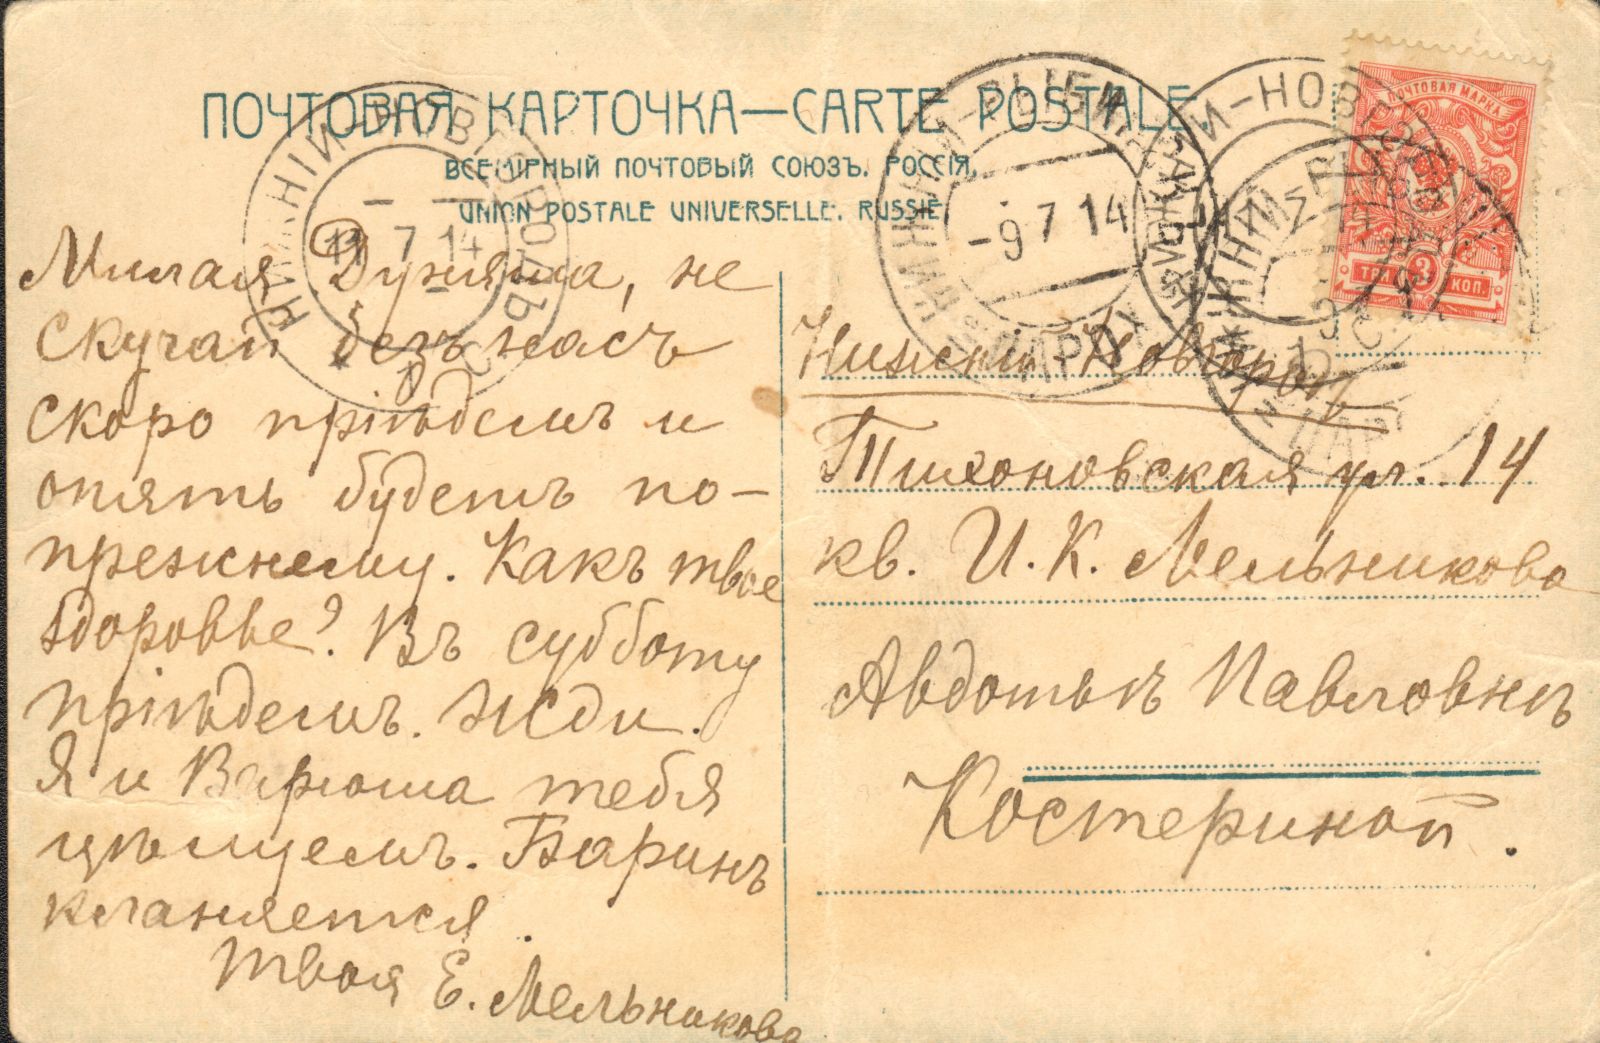 ПОЧТОВАЯ КАРТОЧКА—CARTE POSTALE
ВСЕМІРНЫЙ ПОЧТОВЫЙ СОЮЗЪ. РОССІЯ.
UNION POSTALE UNIVERSELLE. RUSSIE.
НИЖНІЙ-НОВГОРОДЪ
11 7 14
-9 7 14
ПОЧТОВАЯ МАРКА
ТРИ 3 КОП.
Милая Дуняша, не
скучай безъ насъ
скоро пріѣдемъ и
опять будетъ по-
прежнему. Какъ твое
здоровье? Въ субботу
пріѣдемъ. Жди.
Я и Варюша тебя
цѣлуемъ. Баринъ
кланяется.
Твоя Е. Мельникова
Нижний-Новгород
Тихоновская ул. 14
кв. И. К. Мельникова
Авдотьѣ Павловнѣ
Костериной.